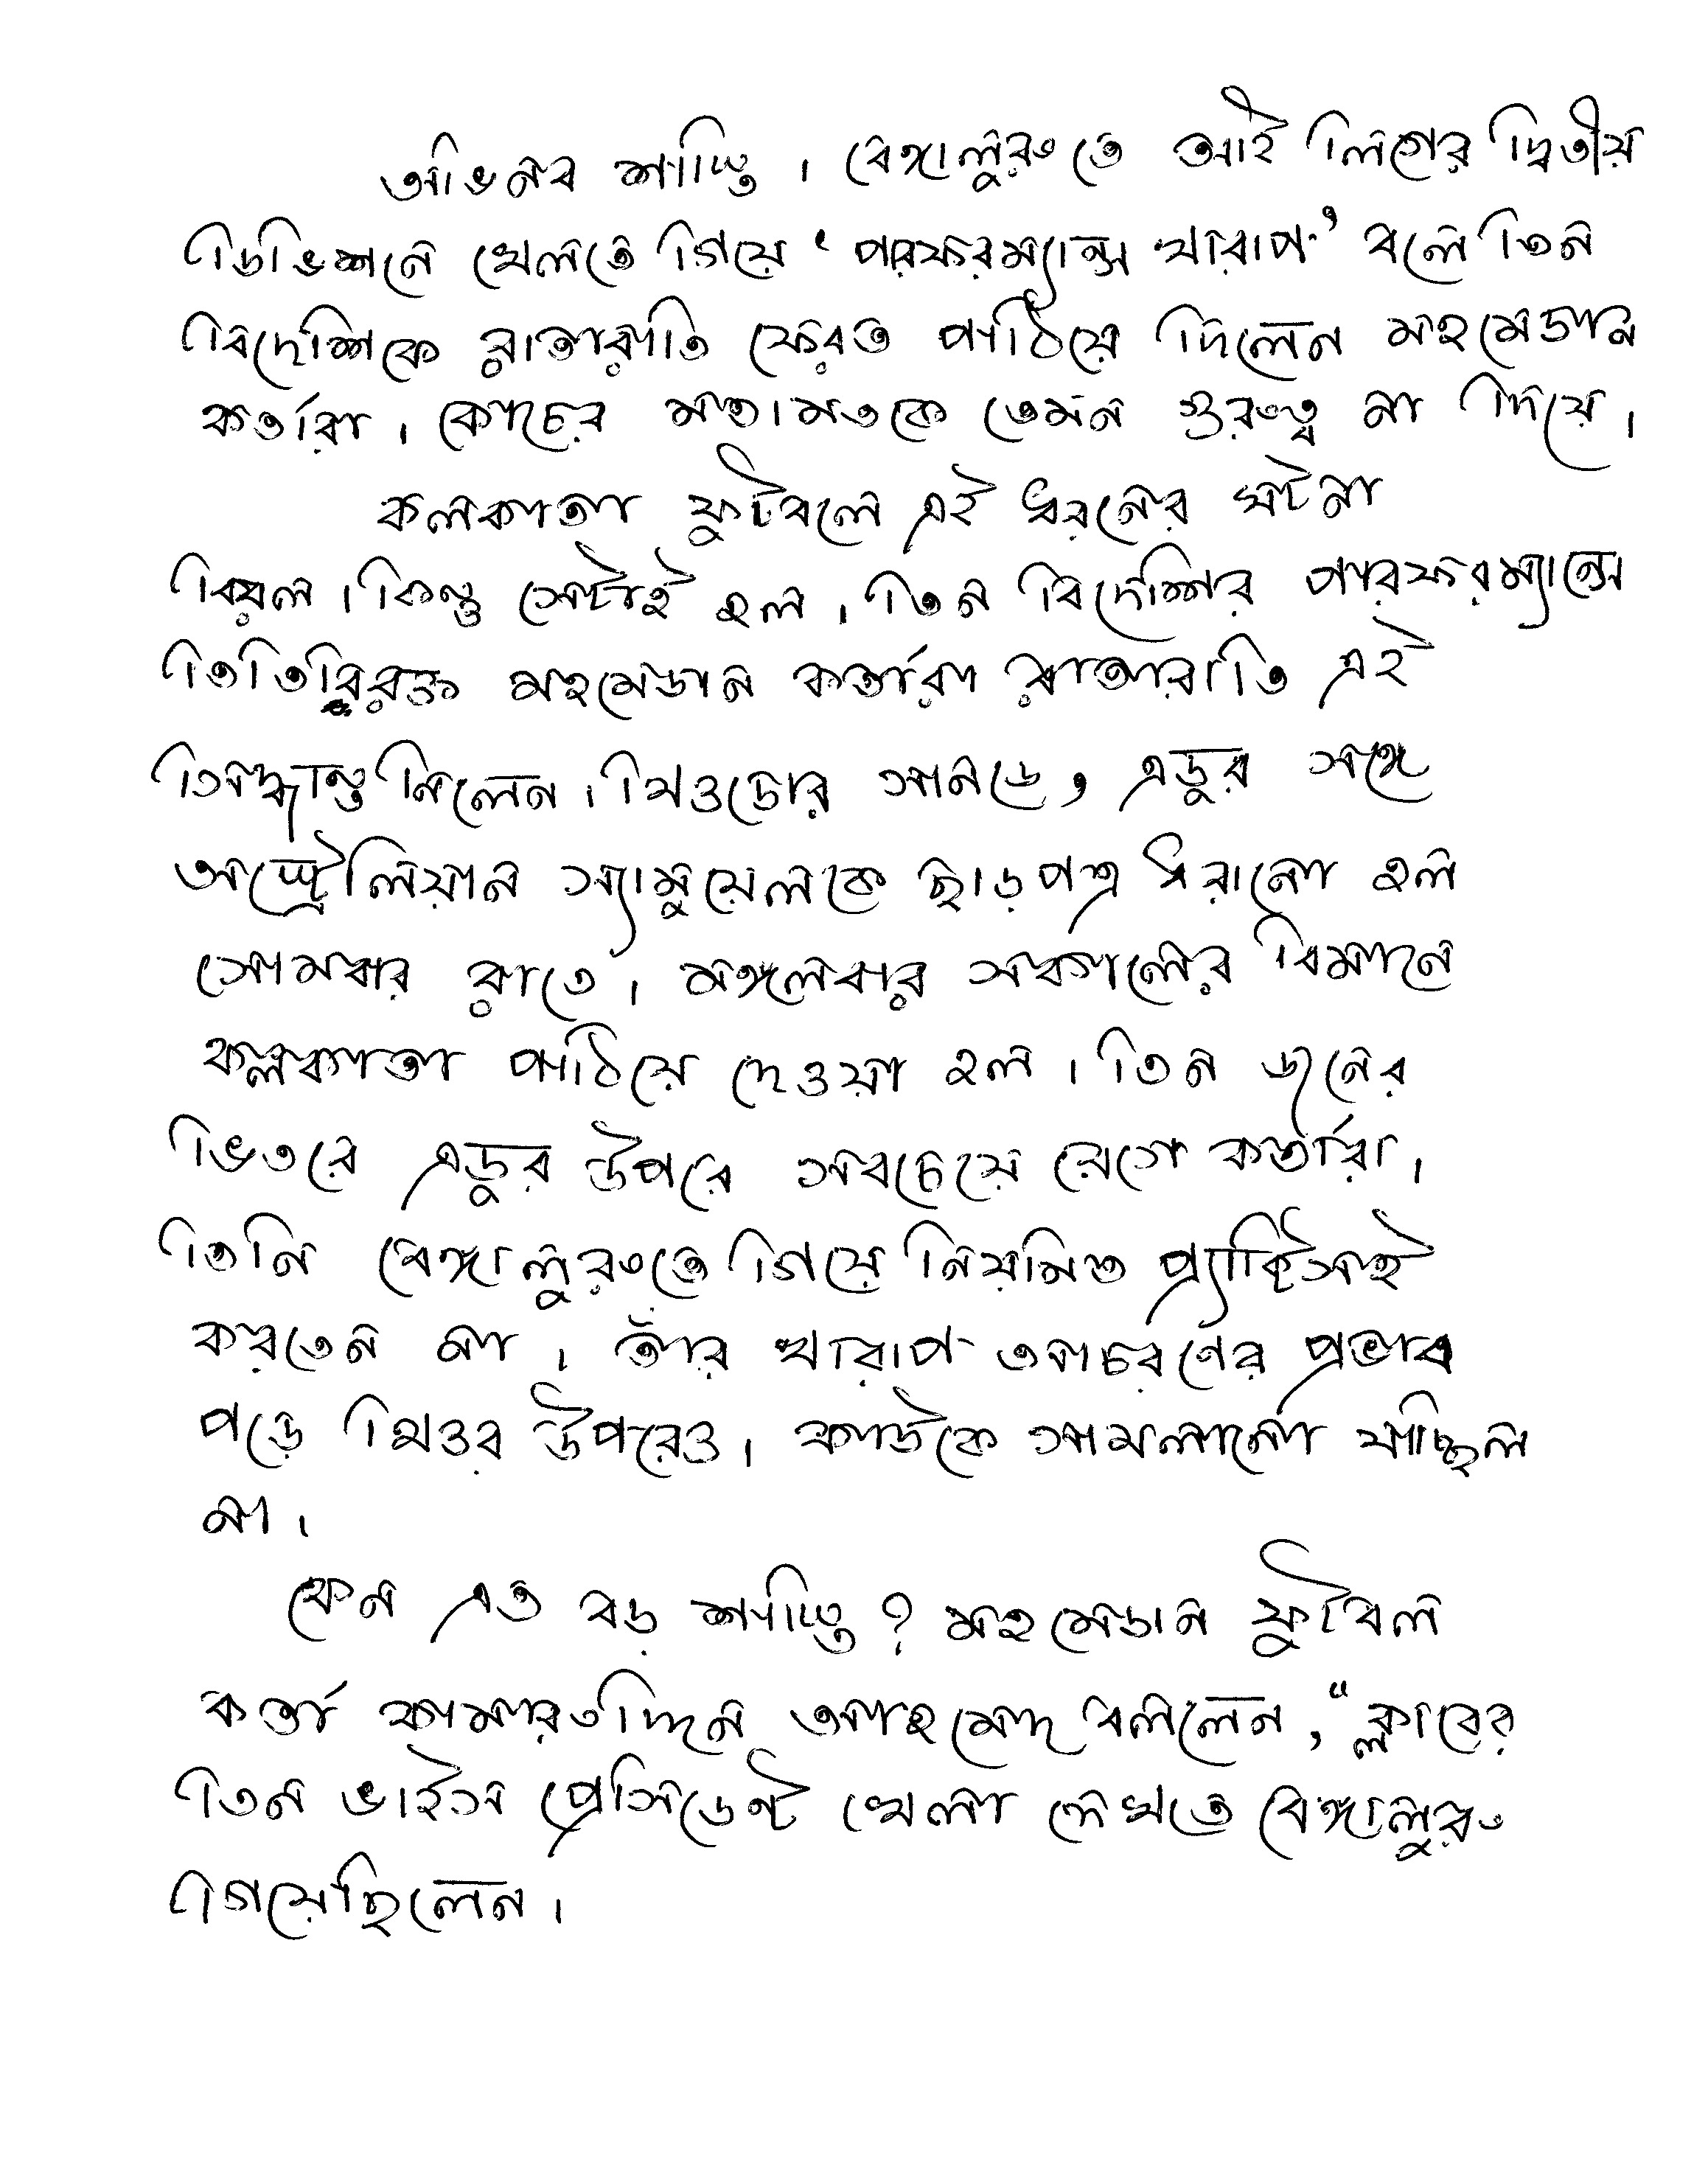 অভিনব শাস্তি। বেঙ্গালুরুতে আই লিগের দ্বিতীয়
ডিভিশনে খেলতে গিয়ে ‘পারফরম্যান্স খারাপ’ বলে তিন
বিদেশিকে রাতারাতি ফেরত পাঠিয়ে দিলেন মহমেডান
কর্তারা। কোচের মতামতকে তেমন গুরুত্ব না দিয়ে।
কলকাতা ফুটবলে এই ধরনের ঘটনা
বিরল। কিন্তু সেটাই হল। তিন বিদেশির পারফরম্যান্সে
তিতিবিরক্ত মহমেডান কর্তারা রাতারাতি এই
সিদ্ধান্ত নিলেন। থিওডোর সানডে, এডুর সঙ্গে
অস্ট্রেলিয়ান স্যামুয়েলকে ছাড়পত্র ধরানো হল
সোমবার রাতে। মঙ্গলবার সকালের বিমানে
কলকাতা পাঠিয়ে দেওয়া হল। তিন জনের
ভিতরে এডুর উপরে সবচেয়ে রেগে কর্তারা।
তিনি বেঙ্গালুরুতে গিয়ে নিয়মিত প্র্যাক্টিসই
করতেন না। তাঁর খারাপ আচরণের প্রভাব
পড়ে থিওর উপরেও। কাউকে সামলানো যাচ্ছিল
না।
কেন এত বড় শাস্তি? মহমেডান ফুটবল
কর্তা কামারউদ্দিন আহমেদ বললেন, “ক্লাবের
তিন ভাইস প্রেসিডেন্ট খেলা দেখতে বেঙ্গালুরু
গিয়েছিলেন।